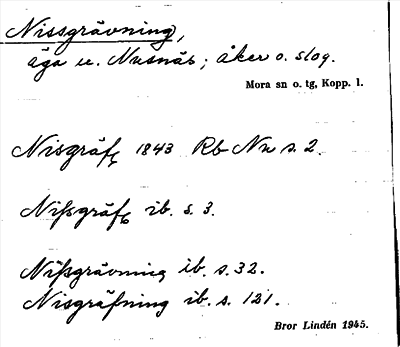 Nissgrävning,
äga u. Nusnäs; åker o. slog.
Mora sn o. tg, Kopp. l.
Nisgräfg 1843 Rb Nn s. 2.
Nißgräfg ib. s. 3.
Nißgrävning ib. s. 32.
Nisgräfning ib. s. 121.
Bror Lindén 1945.